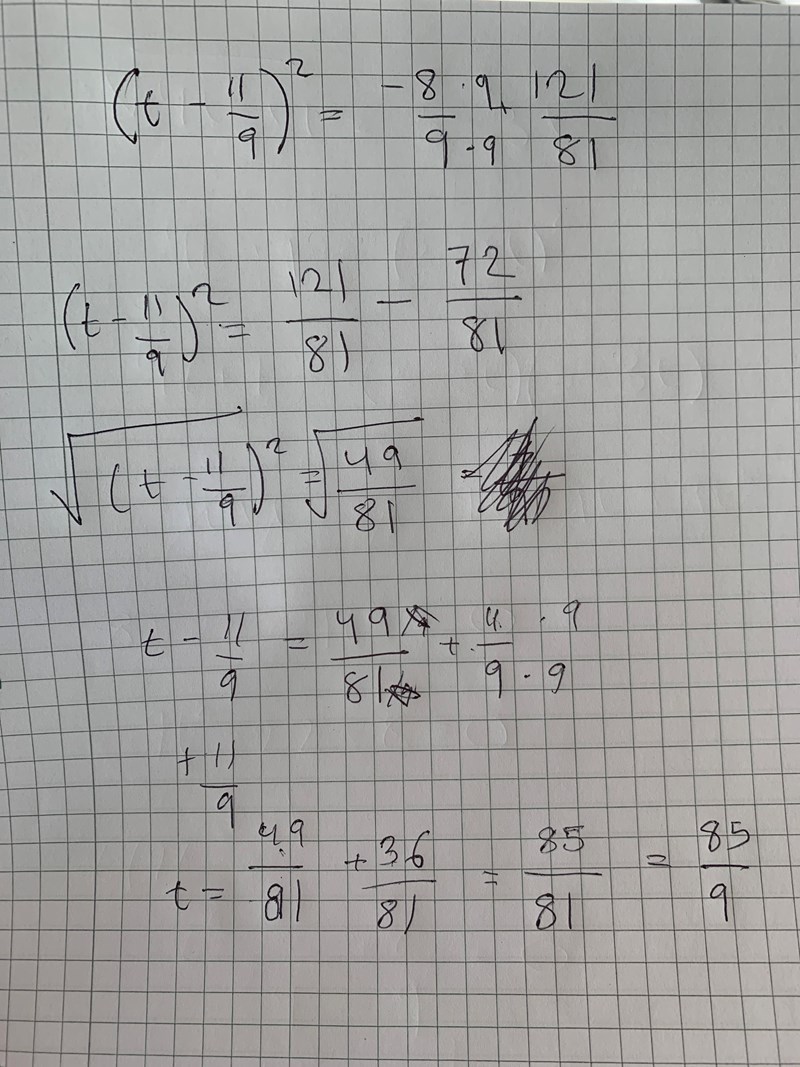 (t - 11/9)² = -8/9 · 9/9 + 121/81
(t - 11/9)² = 121/81 - 72/81
√(t - 11/9)² = √49/81 =
t - 11/9 = 49/81 + 4/9 · 9/9
+ 11/9
t = 49/81 + 36/81 = 85/81 = 85/9